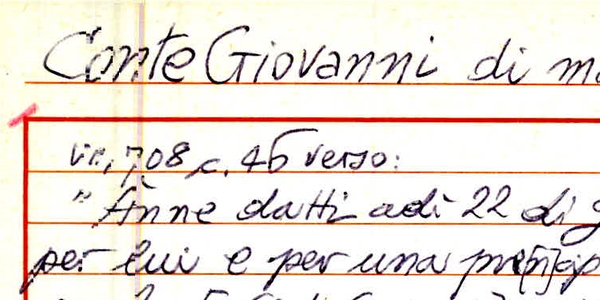 Conte Giovanni di m
708 c. 46 verso:
"Ànne datti adì 22 di g
per lui e per una